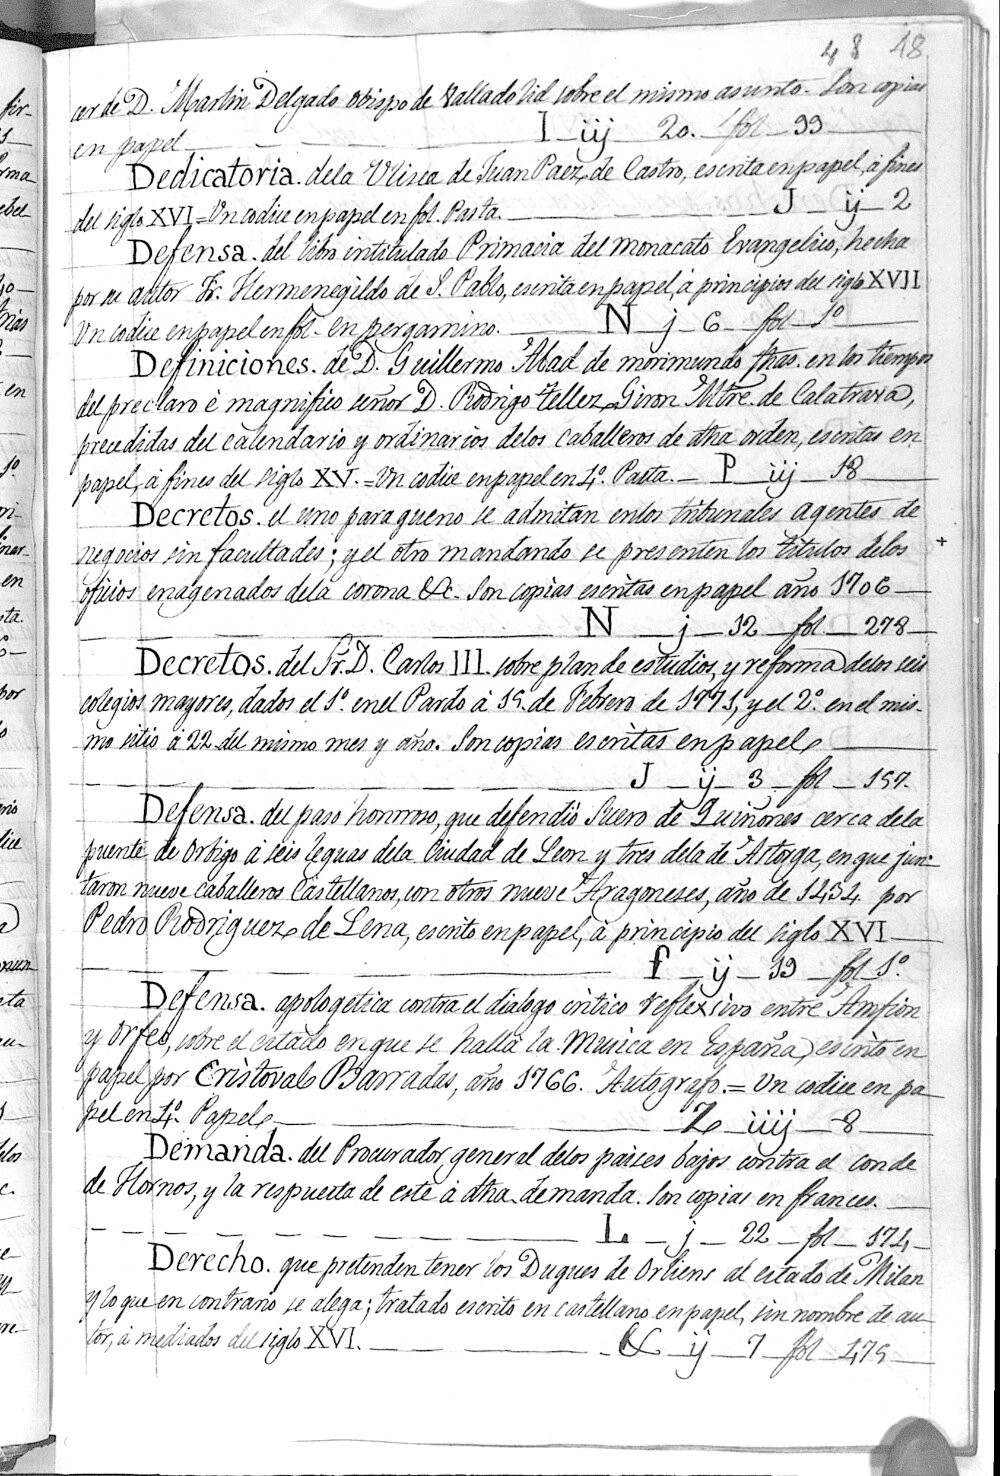 48 48
cer de D. Martin Delgado obispo de Valladolid sobre el mismo asunto. Son copias
en papel I iij 20. fol 99
Dedicatoria. dela Ulisea de Juan Paez de Castro, escrita en papel, à fines
del siglo XVI = Un codice en papel en fol. Pasta. J ij 2
Defensa. del libro intitulado Primacia del monacato Evangelico, hecha
por su autor Fr. Hermenegildo de S. Pablo, escrita en papel, à principios del siglo XVII
Un codice en papel en fol. en pergamino. N j 6 fol 1º
Definiciones. de D. Guillermo Abad de morimundo fhas. en los tiempos
del preclaro è magnifico señor D. Rodrigo Tellez Giron Mtre. de Calatrava,
precedidas del calendario y ordinarios delos caballeros de dha orden, escritas en
papel, à fines del siglo XV. = Un codice en papel en 4º. Pasta. P iij 18
Decretos. el uno para que no se admitan enlos tribunales agentes de
negocios sin facultades; y el otro mandando se presenten los titulos delos +
oficios enagenados dela corona &c. Son copias escritas en papel año 1706
N j 12 fol 278
Decretos. del Sr. D. Carlos III. sobre plan de estudios, y reforma delos seis
colegios mayores, dados el 1º. enel Pardo à 15. de Febrero de 1771, y el 2º. en el mis-
mo sitio à 22 del mismo mes y año. Son copias escritas en papel
J ij 3 fol 157.
Defensa. del paso honrroso, que defendiò Suero de Quiñones cerca dela
puente de Orbigo à seis leguas dela Ciudad de Leon y tres dela de Astorga, en que jun-
taron nueve caballeros Castellanos, con otros nueve Aragoneses, año de 1434 por
Pedro Rodriguez de Lena, escrito en papel, à principio del siglo XVI
f ij 19 fol 1º.
Defensa. apologetica contra el dialogo critico reflexivo entre Amfion
y Orfeo, sobre el estado en que se halla la Musica en España, escrito en
papel por Cristoval Barradas, año 1766. Autografo. = Un codice en pa
pel en 4º. Papel Z iiij 8
Demanda. del Procurador general delos paises bajos contra el conde
de Hornos, y la respuesta de este à dha demanda. Son copias en frances.
L j 22 fol 174
Derecho. que pretenden tener los Duques de Orliens al estado de Milan
y lo que en contrario se alega; tratado escrito en castellano en papel, sin nombre de au
tor, à mediados del siglo XVI. & ij 7 fol 475